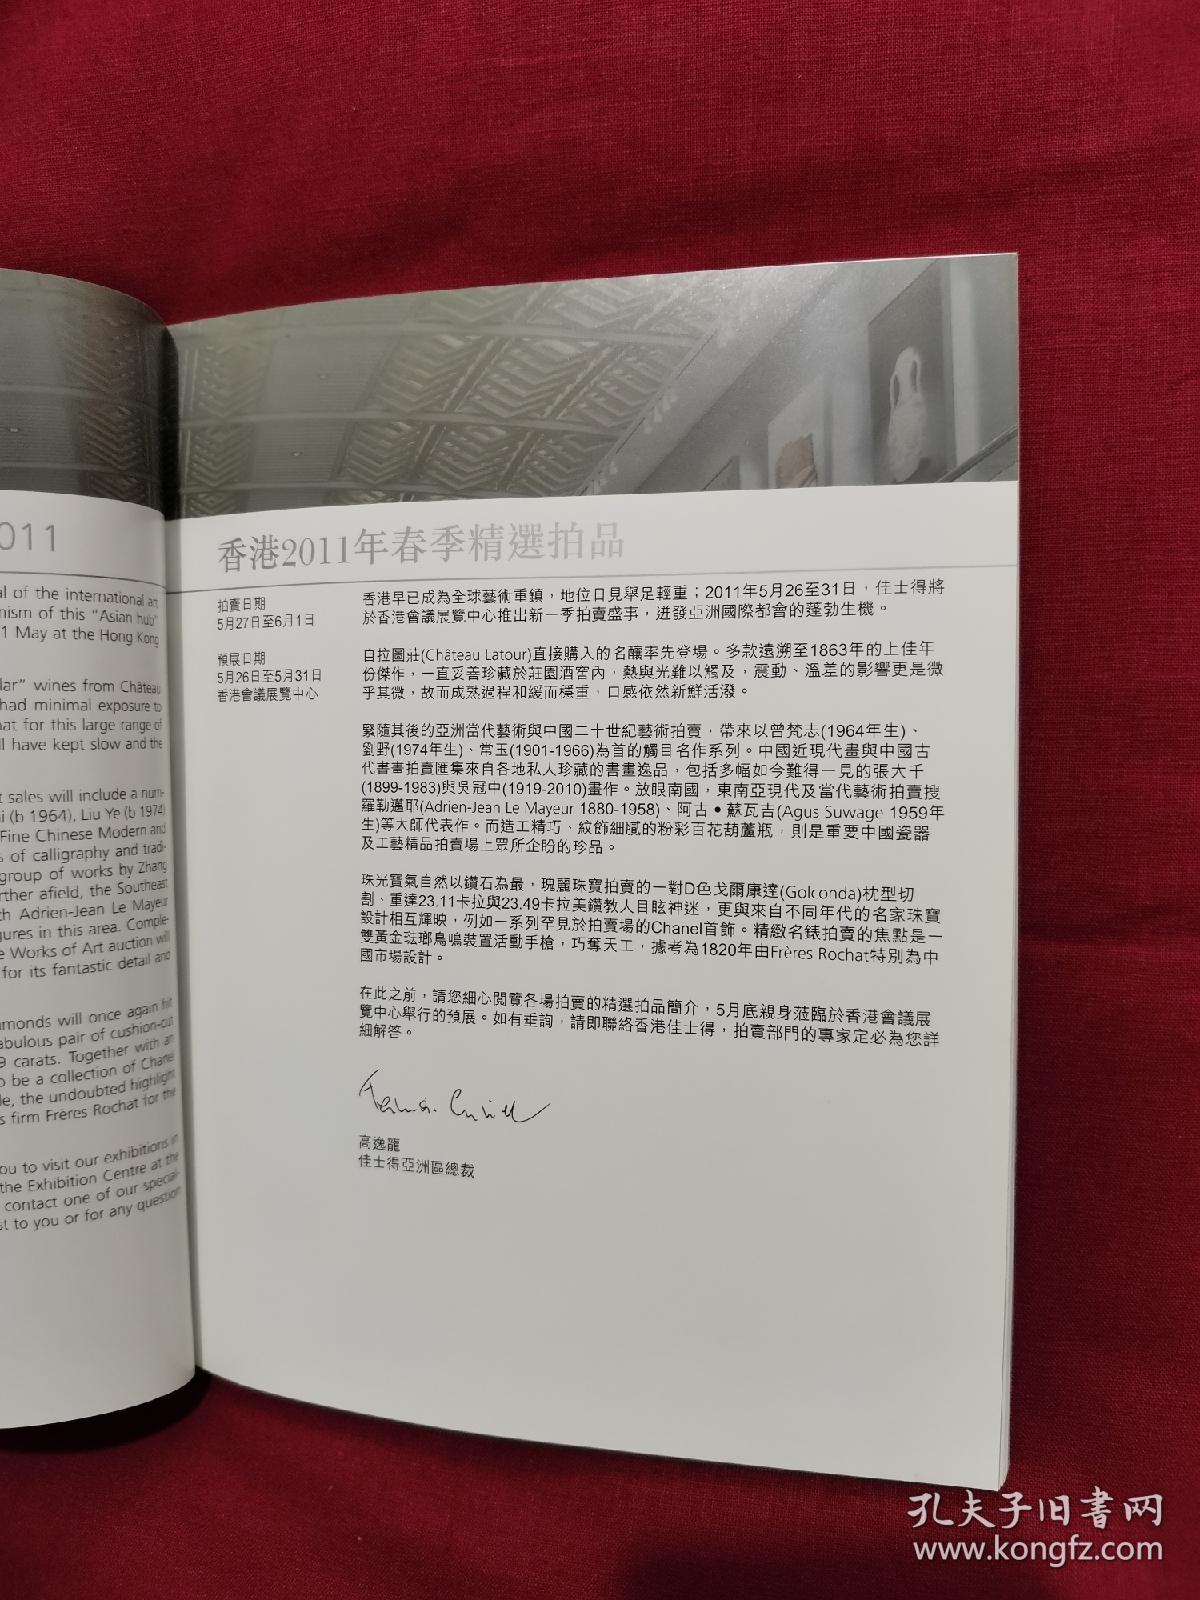 011
al of the international art
nism of this “Asian hub”
1 May at the Hong Kong
lar” wines from Château
had minimal exposure to
at for this large range of
ll have kept slow and the
t sales will include a num-
i (b 1964), Liu Ye (b 1974)
Fine Chinese Modern and
s of calligraphy and tradi-
group of works by Zhang
rther afield, the Southeast
h Adrien-Jean Le Mayeur
gures in this area. Comple-
e Works of Art auction will
for its fantastic detail and
amonds will once again
abulous pair of cushion-cut
9 carats. Together with an
o be a collection of Chanel
le, the undoubted highlight
s firm Frères Rochat for the
ou to visit our exhibitions in
the Exhibition Centre at the
contact one of our special-
st to you or for any question
香港2011年春季精選拍品
拍賣日期
5月27日至6月1日
預展日期
5月26日至5月31日
香港會議展覽中心
香港早已成為全球藝術重鎮，地位日見舉足輕重；2011年5月26至31日，佳士得將
於香港會議展覽中心推出新一季拍賣盛事，迸發亞洲國際都會的蓬勃生機。
自拉圖莊(Château Latour)直接購入的名釀率先登場。多款遠溯至1863年的上佳年
份傑作，一直妥善珍藏於莊園酒窖內，熱與光難以觸及，震動、溫差的影響更是微
乎其微，故而成熟過程和緩而穩重，口感依然新鮮活潑。
緊隨其後的亞洲當代藝術與中國二十世紀藝術拍賣，帶來以曾梵志(1964年生)、
劉野(1974年生)、常玉(1901-1966)為首的觸目名作系列。中國近現代畫與中國古
代書畫拍賣匯集來自各地私人珍藏的書畫逸品，包括多幅如今難得一見的張大千
(1899-1983)與吳冠中(1919-2010)畫作。放眼南國，東南亞現代及當代藝術拍賣搜
羅勒邁耶(Adrien-Jean Le Mayeur 1880-1958)、阿古•蘇瓦吉(Agus Suwage 1959年
生)等大師代表作。而造工精巧、紋飾細膩的粉彩百花葫蘆瓶，則是重要中國瓷器
及工藝精品拍賣場上眾所企盼的珍品。
珠光寶氣自然以鑽石為最，瑰麗珠寶拍賣的一對D色戈爾康達(Golconda)枕型切
割、重達23.11卡拉與23.49卡拉美鑽教人目眩神迷，更與來自不同年代的名家珠寶
設計相互輝映，例如一系列罕見於拍賣場的Chanel首飾。精緻名錶拍賣的焦點是一
雙黃金琺瑯鳥鳴裝置活動手槍，巧奪天工，據考為1820年由Frères Rochat特別為中
國市場設計。
在此之前，請您細心閱覽各場拍賣的精選拍品簡介，5月底親身蒞臨於香港會議展
覽中心舉行的預展。如有垂詢，請即聯絡香港佳士得，拍賣部門的專家定必為您詳
細解答。
高逸龍
佳士得亞洲區總裁
孔夫子旧书网
www.kongfz.com